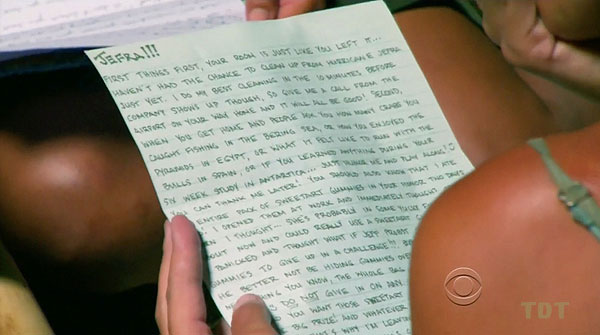 JEFRA!!!
FIRST THINGS FIRST, YOUR ROOM IS JUST LIKE YOU LEFT IT...
HAVEN'T HAD THE CHANCE TO CLEAN UP FROM HURRICANE JEFRA
JUST YET. I DO MY BEST CLEANING IN THE 10 MINUTES BEFORE
COMPANY SHOWS UP THOUGH, SO GIVE ME A CALL FROM THE
AIRPORT ON YOUR WAY HOME AND IT WILL ALL BE GOOD! SECOND,
WHEN YOU GET HOME AND PEOPLE ASK YOU HOW MANY CRABS YOU
CAUGHT FISHING IN THE BERING SEA, OR HOW YOU ENJOYED THE
PYRAMIDS IN EGYPT, OR WHAT IT FELT LIKE TO RUN WITH THE
BULLS IN SPAIN, OR IF YOU LEARNED ANYTHING DURING YOUR
SIX WEEK STUDY IN ANTARTICA... JUST HUMOR ME AND PLAY ALONG!
YOU CAN THANK ME LATER. YOU SHOULD ALSO KNOW THAT I ATE
ENTIRE PACK OF SWEETART GUMMIES IN YOUR HONOR TWO DAYS
I OPENED THEM AT WORK AND IMMEDIATELY THOUGHT
I THOUGHT... SHE'S PROBABLY IN SOME
RIGHT NOW AND COULD REALLY USE A SWEETART
I PANICKED AND THOUGHT WHAT IF JEFF PROBST
GUMMIES TO GIVE UP IN A CHALLENGE!!!
HE BETTER NOT BE HIDING GUMMIES OVER
YOU KNOW, THE WHOLE BAG
DO NOT GIVE IN ON ANY
YOU WANT THOSE SWEETART
BIG PRIZE AND WHATEVER
WHY I'M LEAVING
CBS
TDT